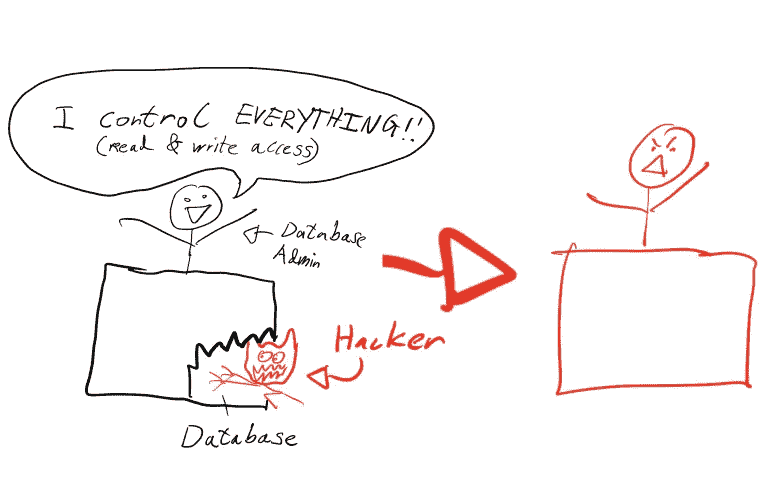 I control EVERYTHING!!
(read & write access)
Database
Admin
Hacker
Database